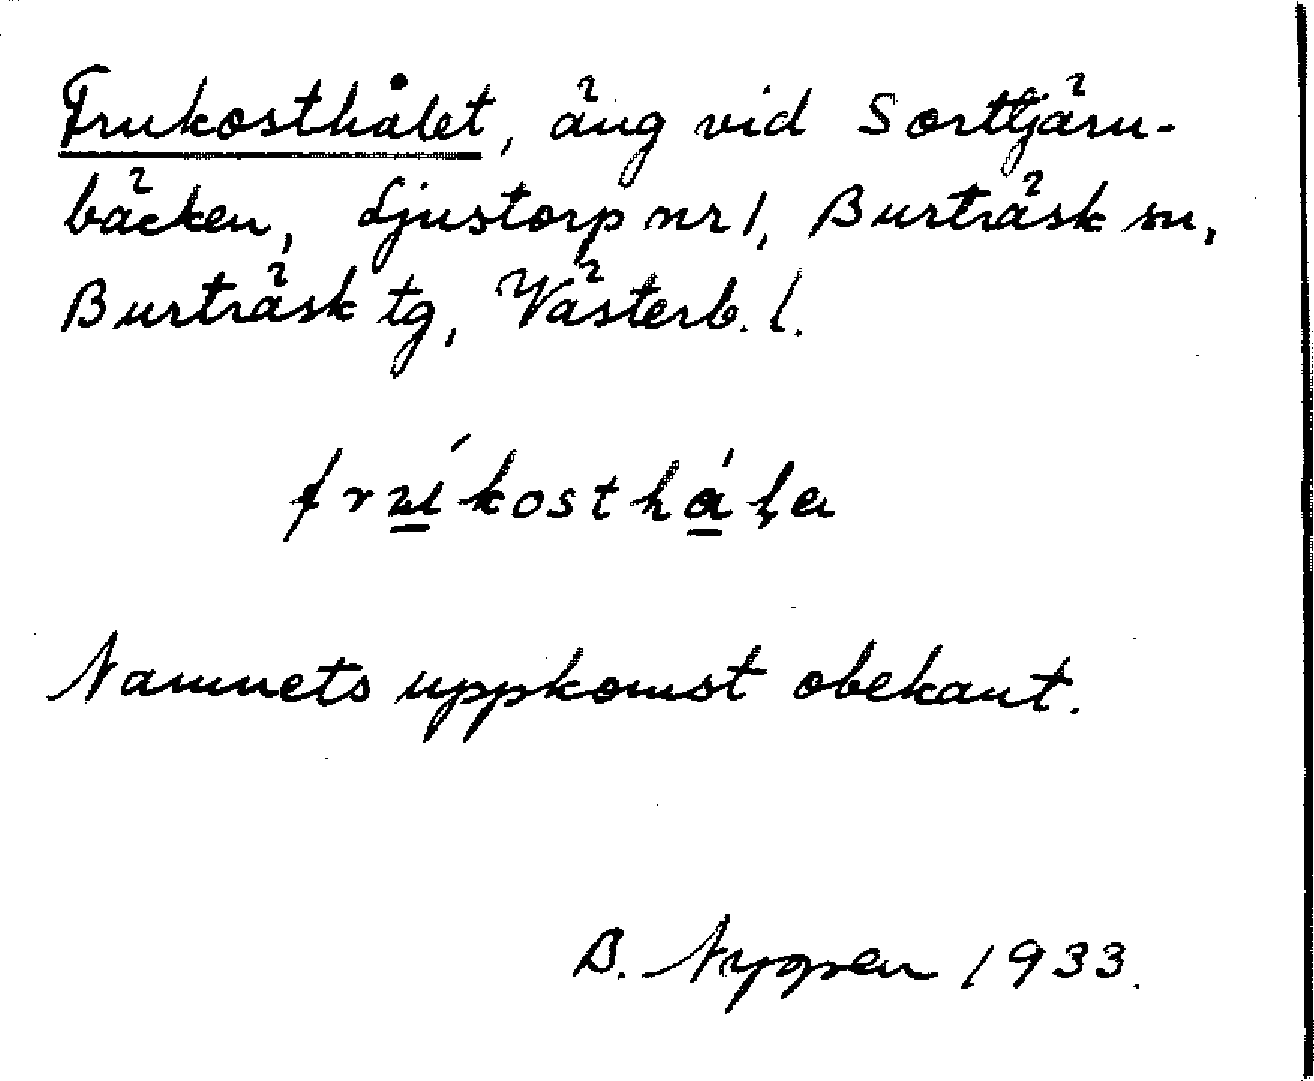 Frukosthålet, äng vid Sorttjärn-
bäcken, Ljustorp nr 1, Burträsk sn,
Burträsk tg, Västerb. l.
frúkosthálа
Namnets uppkomst obekant.
B. Nygren 1933.